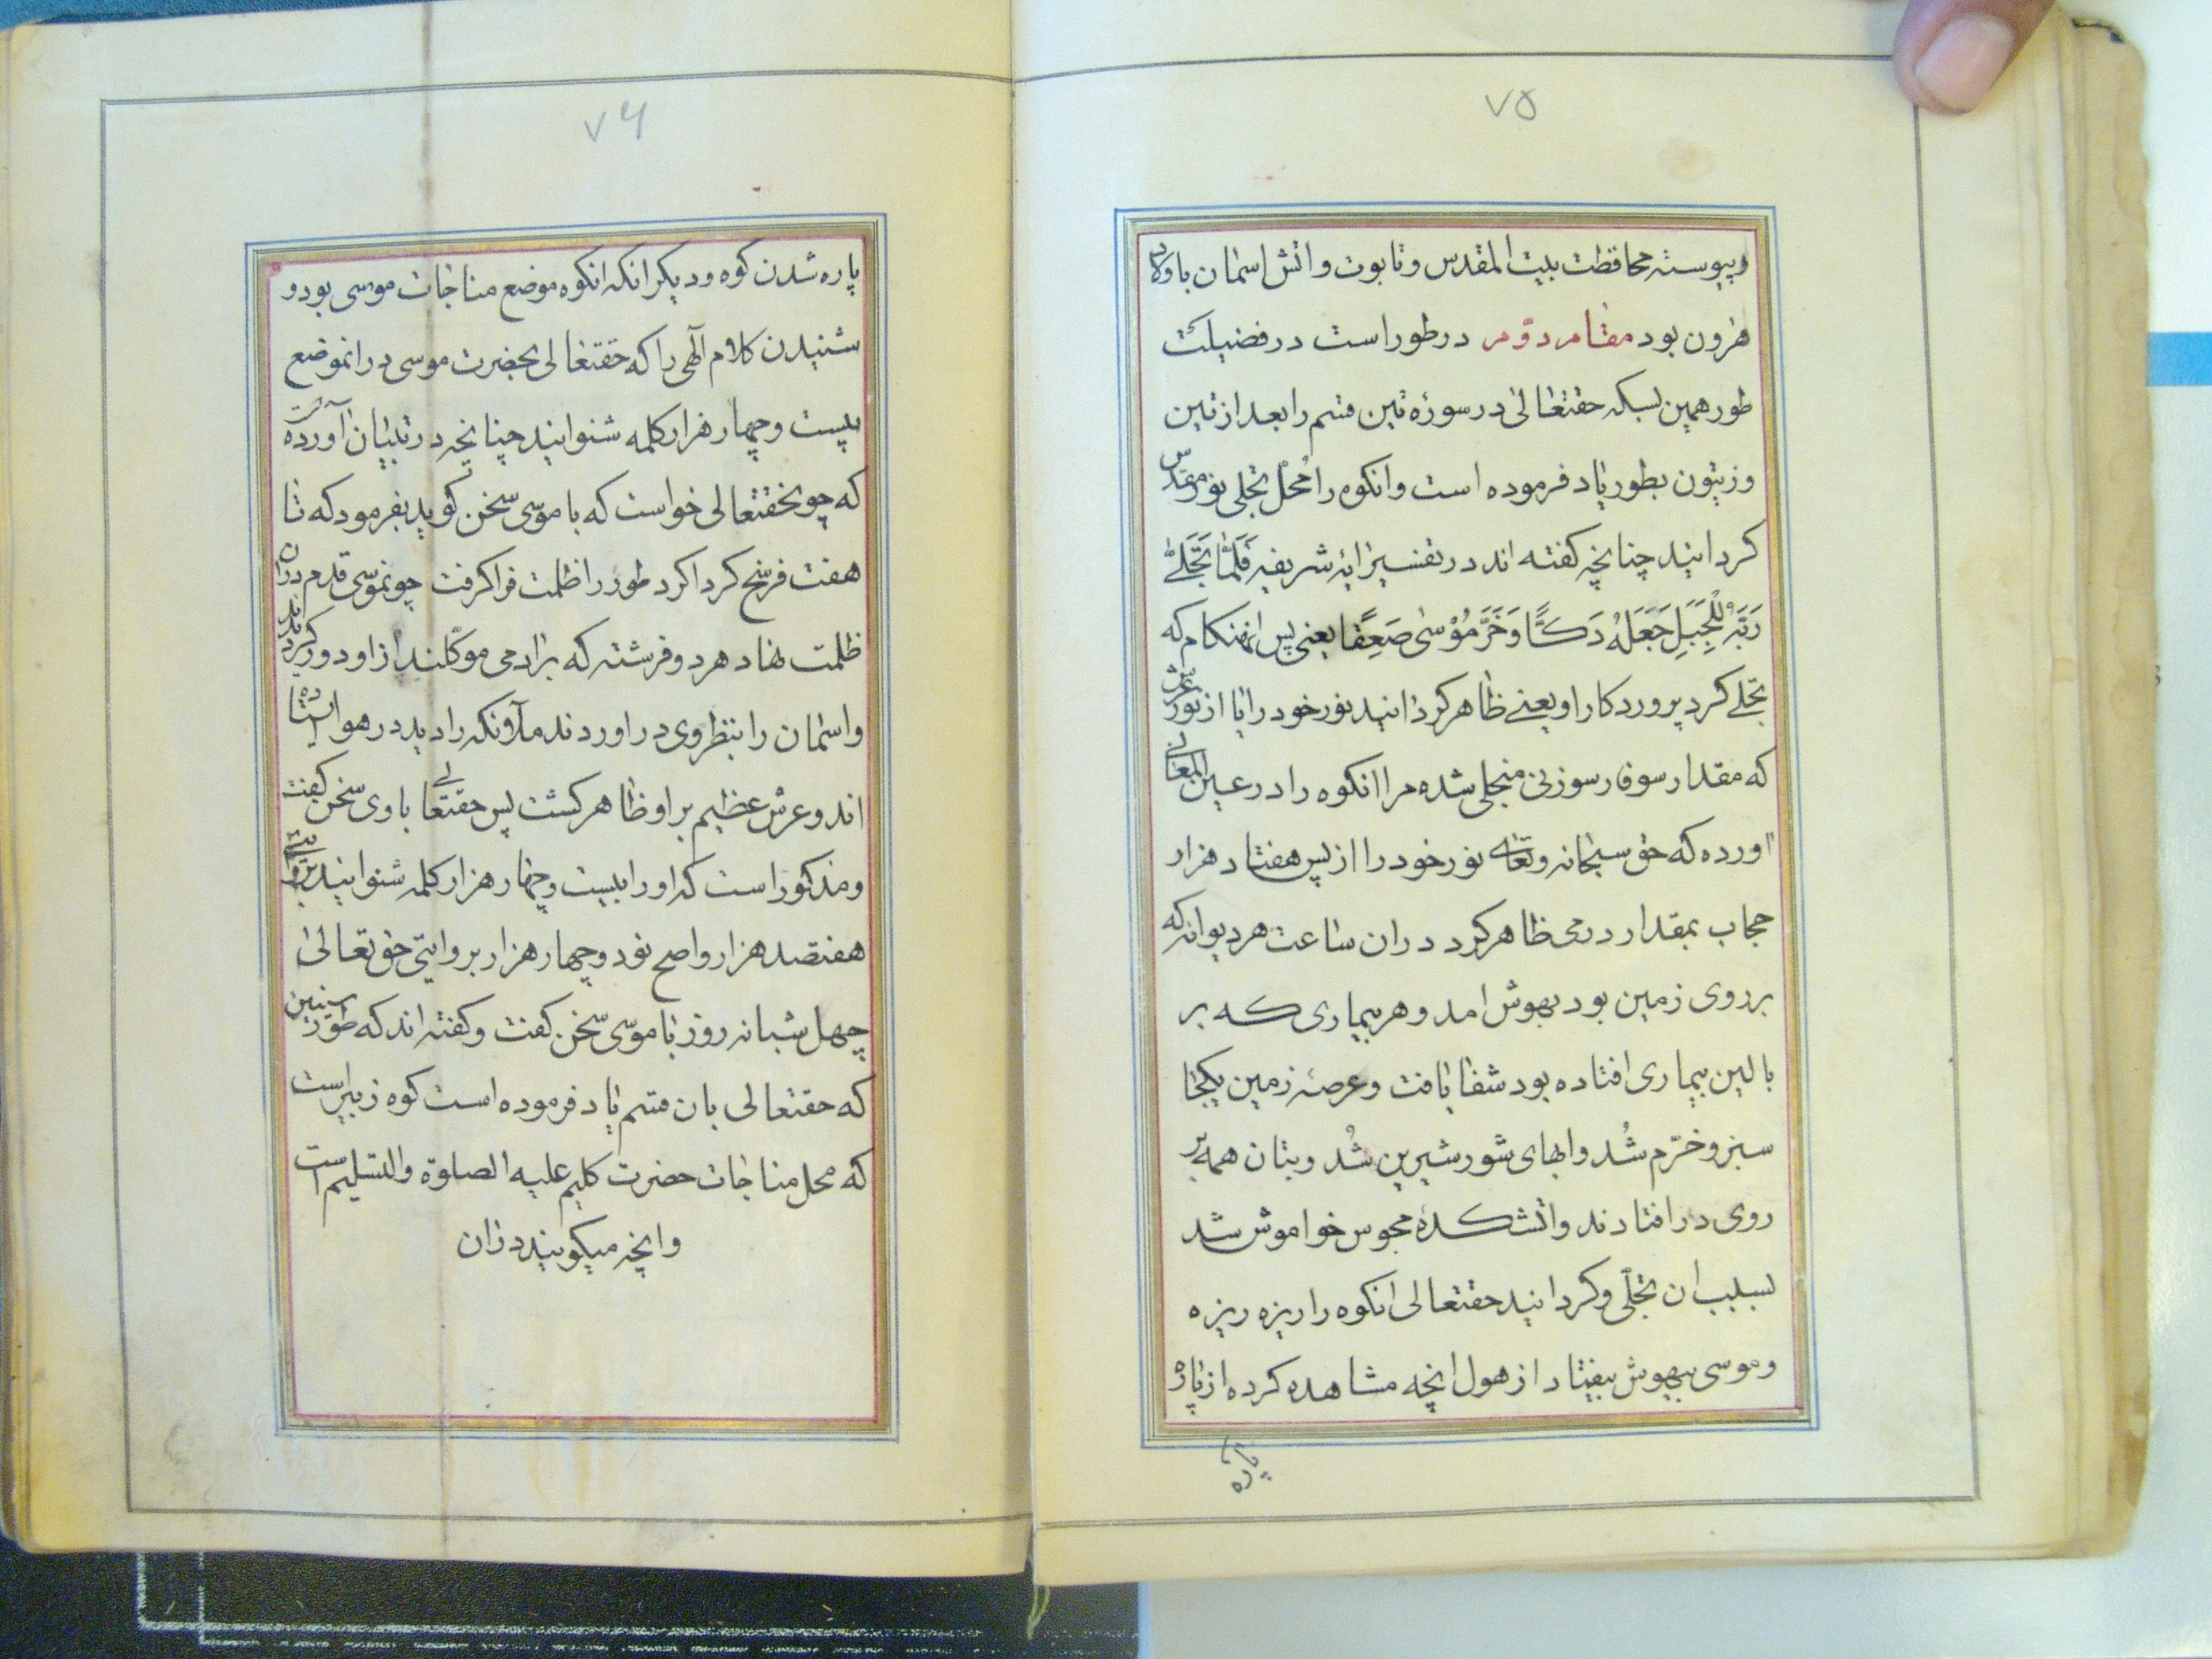 ۷۵
وپیوسته محافظت بیت المقدس وتابوت واتش اسمان باولاد
هرون بود مقام دوم در طوراست در فضیلت
طور همین بسکه حقتعالی در سوره تین قسم را بعد از تین
وزیتون بطور یاد فرموده است وانکوه را محل تجلی نور مقدس
کردانید چنانچه کفته اند در تفسیر ایهٔ شریفه فَلَمّا تَجَلّیٰ
رَبُّهُ لِلْجَبَلِ جَعَلَهُ دَكًّا وَخَرَّ مُوْسٰی صَعِقًا یعنی پس انهنکام که
تجلی کرد پروردکار او یعنی ظاهر کردانید نور خود را یا از نور عرش
که مقدار سوفار سوزنی منجلی شده مر انکوه را در عین المعانی
اورده که حق سبحانه وتعالی نور خود را از پس هفتاد هزار
حجاب بمقدار درمی ظاهر کرد دران ساعت هر دیوانه که
بر روی زمین بود بهوش امد وهر بیماری که بر
بالین بیماری افتاده بود شفا یافت وعرصهٔ زمین یکجا
سبز وخرّم شُد وابهای شور شیرین شُد وبتان همه بر
روی در افتادند واتشکدهٔ مجوس خواموش شد
بسبب ان تجلّی وکردانید حقتعالی انکوه را ریزه ریزه
وموسی بیهوش بیفتاد از هول انچه مشاهده کرده از پاره
پاره
۷۶
پاره شدن کوه ودیکر انکه انکوه موضع مناجات موسی بود و
شنیدن کلام الٓهی را که حقتعالی بحضرت موسی در انموضع
بیست وچهار هزار کلمه شنوانید چنانچه در تبیان آورده است
که چونحقتعالی خواست که با موسی سخن کوید بفرمود که تا
هفت فرسخ کرداکرد طور را ظلمت فراکرفت چونموسی قدم دران
ظلمت نهاد هر دو فرشته که بر ادمی موکلند از او دور کردند
واسمان را بنظر وی در اوردند ملآئکه را دید در هوا ایستاده
اند وعرش عظیم بر او ظاهر کشت پس حقتعالی با وی سخن کفت
ومذکور است که او را بیست وچهار هزار کلمه شنوانید بروایتی
هفتصد هزار واصح نود وچهار هزار بروایتی حق تعالیٰ
چهل شبانه روز با موسی سخن کفت وکفته اند که طور سینین
که حقتعالی بان قسم یاد فرموده است کوه زبیر است
که محل مناجات حضرت کلیم علیه الصلوة والتسلیم است
وانچه میکویند دران